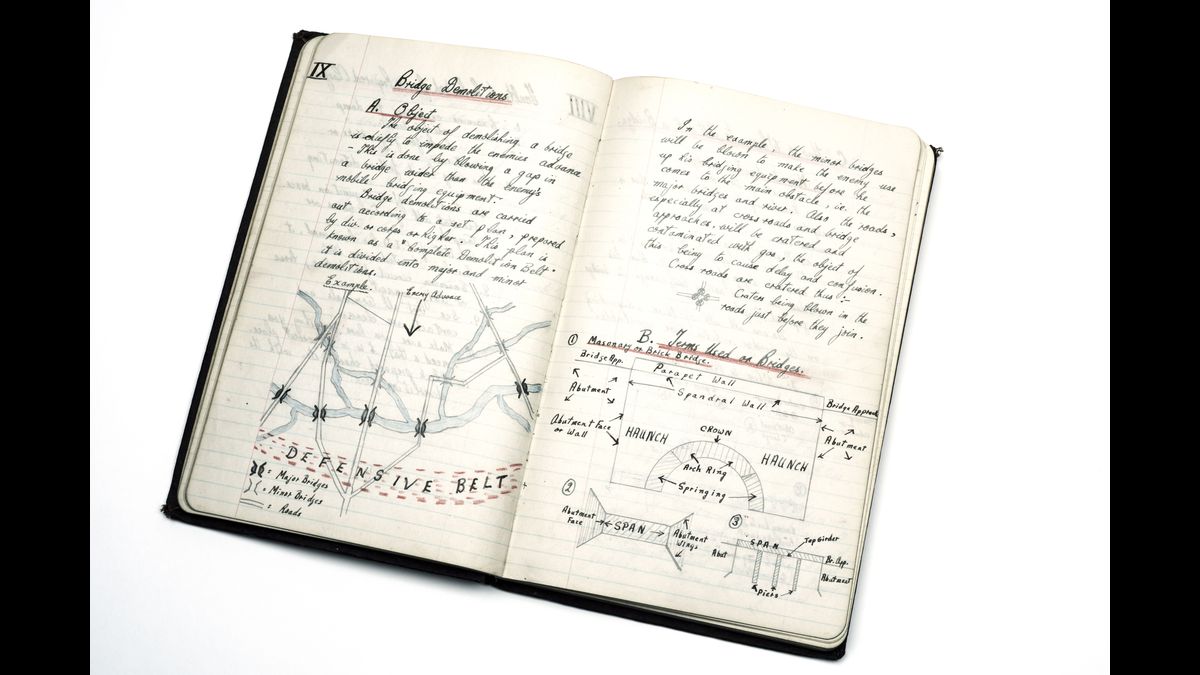 IX
Bridge Demolitions
A. Object
The object of demolishing, a bridge
is chiefly to impede the enemies advance
- This is done by blowing a gap in
a bridge wider than the enemy's
mobile bridging equipment.-
Bridge demolitions are carried
out according to a set plan, prepared
by div. or corps or higher. This plan is
known as a "Complete Demolition Belt.
it is divided into major and minor
demolitions.
Example.
Enemy Advance
DEFENSIVE BELT
= Major Bridges
= Minor Bridges
= Roads
VIII
In the example, the minor bridges
will be blown to make the enemy use
up his bridging equipment before he
comes to the main obstacle, i.e. the
major bridges and river. Also the roads,
especially at cross roads and bridge
approaches, will be cratered and
contaminated with gas, the object of
this being to cause delay and confusion.
Cross roads are cratered thus:-
Craters being blown in the
roads just before they join.
B. Terms Used on Bridges.
① Masonary or Brick Bridge.
Bridge App.
Parapet Wall
Abutment
Spandral Wall
Bridge Approach
Abutment Face
or Wall
HAUNCH
CROWN
HAUNCH
Abutment
Arch Ring
Springing
②
Abutment
Face
SPAN
Abutment
Wings
③
SPAN
Top Girder
Abut
Br. App.
Abutment
Piers